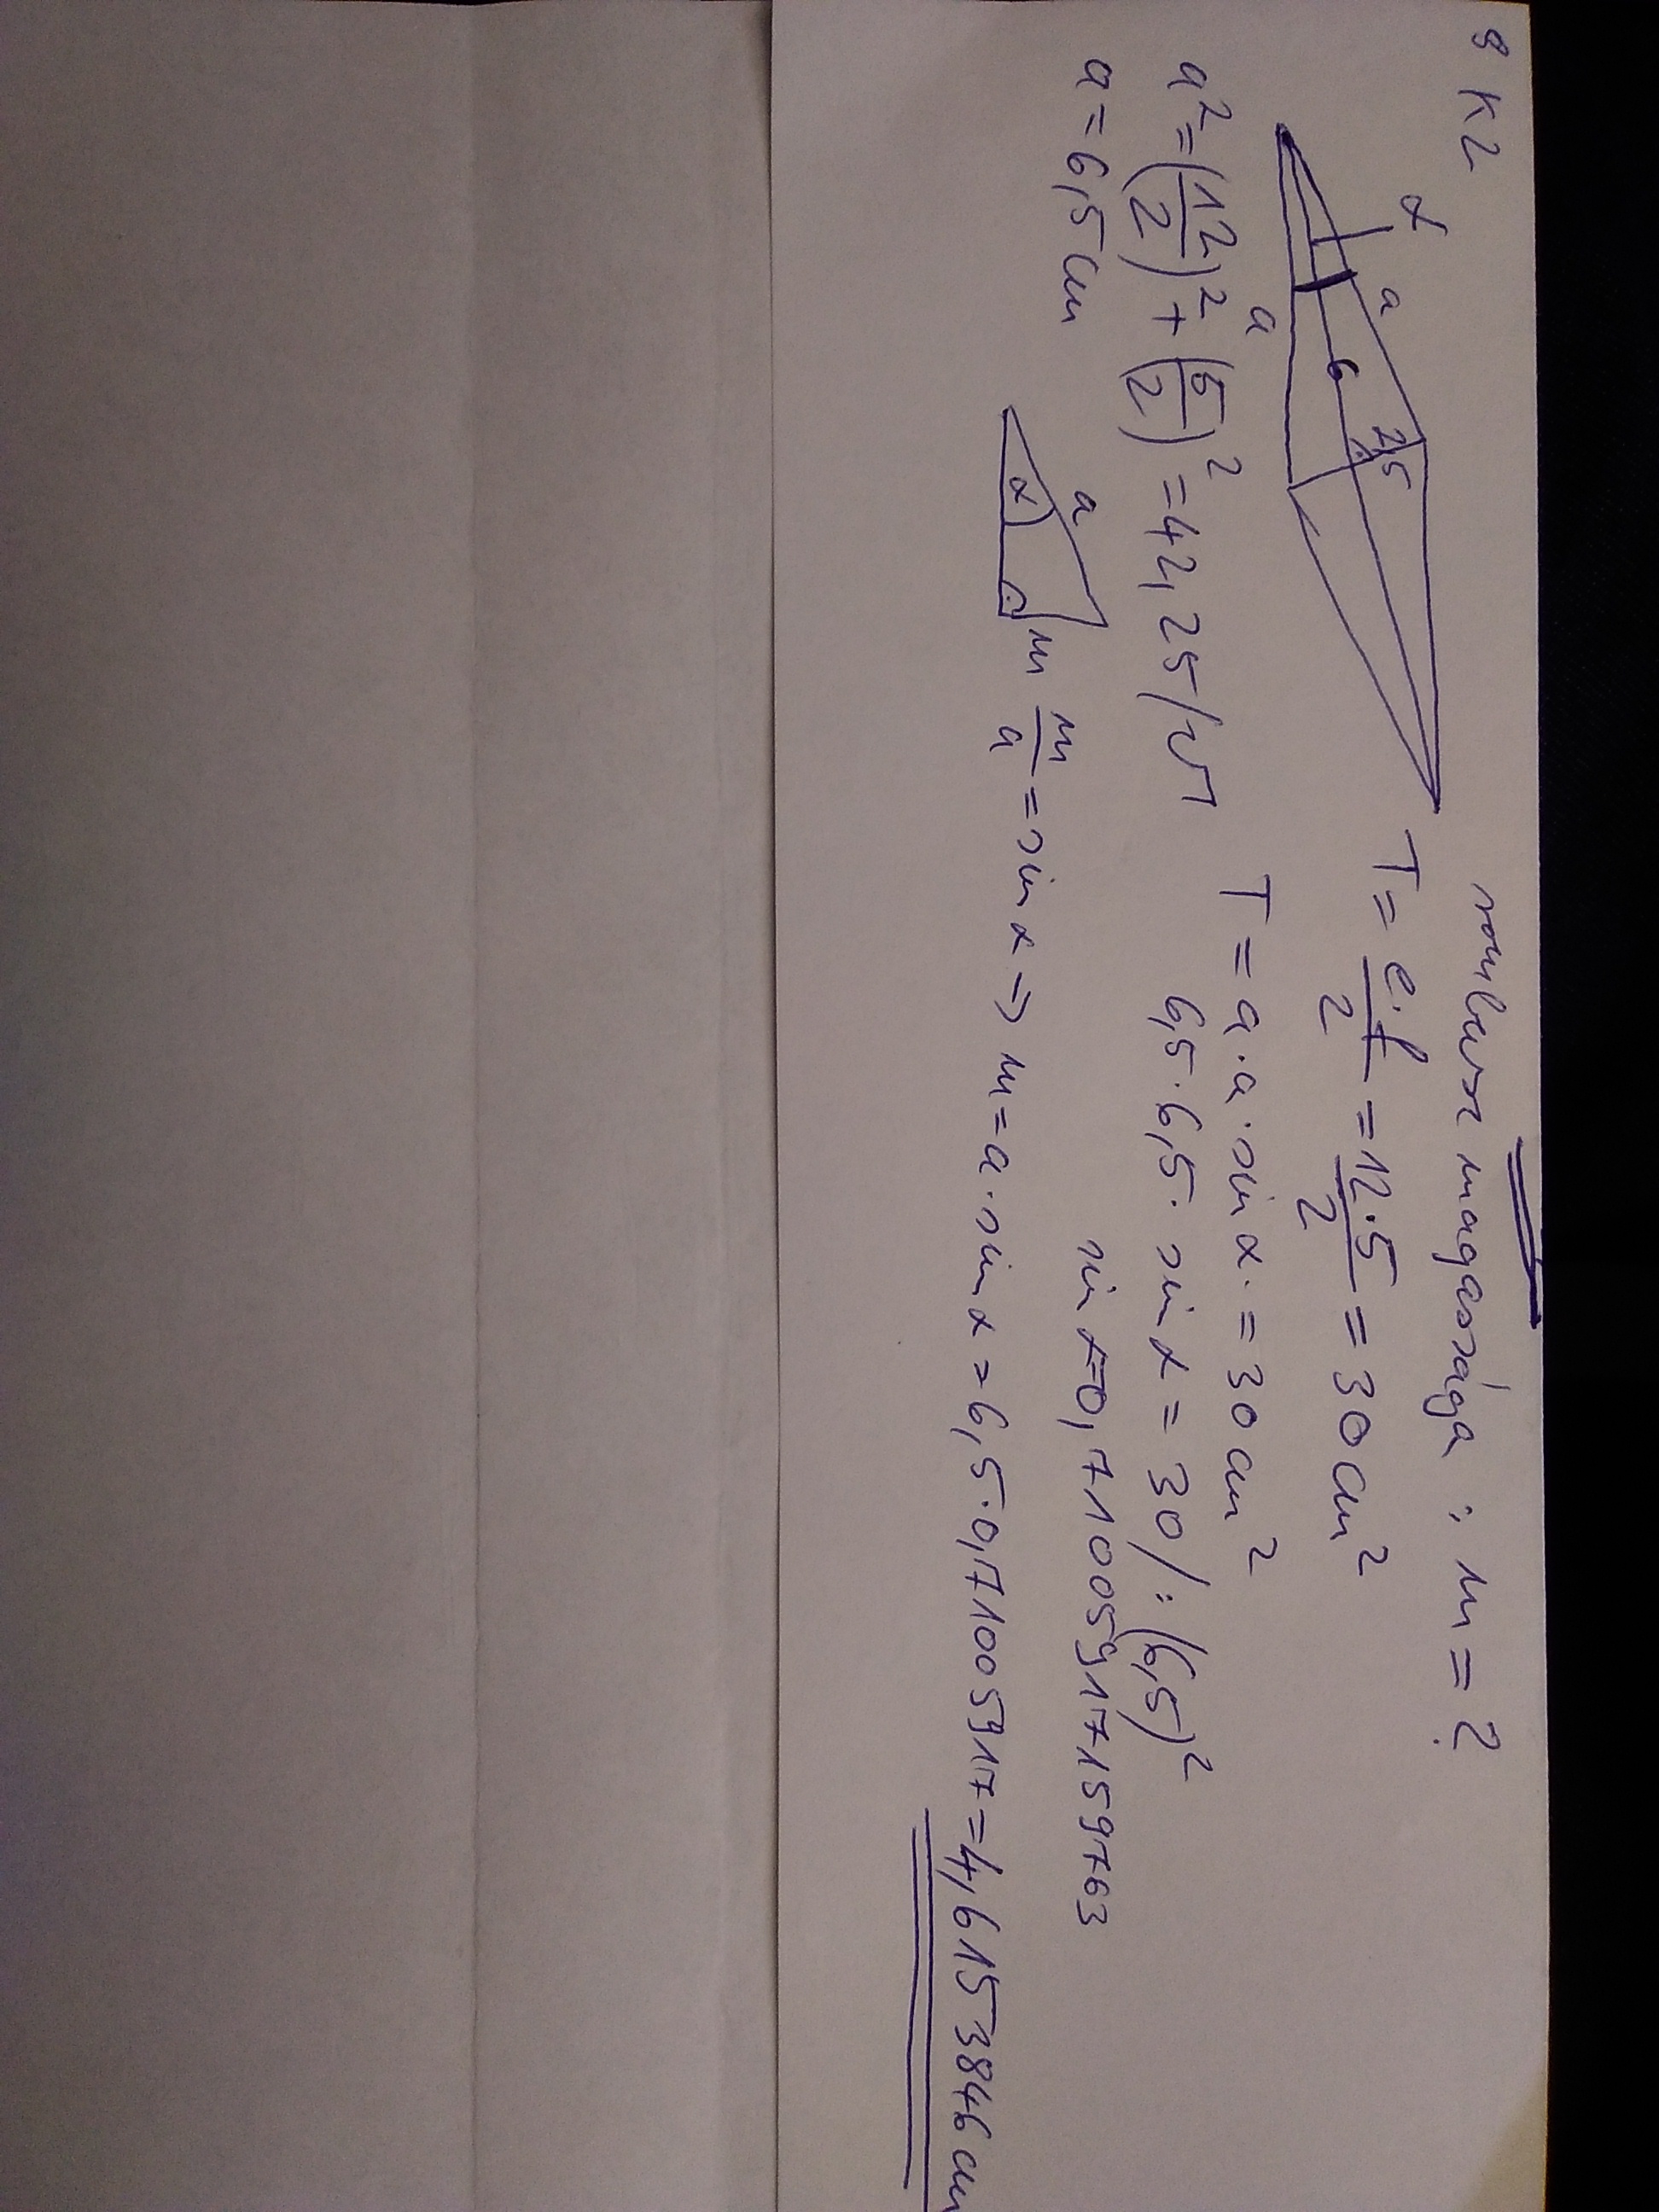 9 K2
rombusz magassága : m = ?
α
a
2,5
6
a
T = e·f/2 = 12·5/2 = 30 cm²
a² = (12/2)² + (5/2)² = 42,25 /√
T = a · a · sin α · = 30 cm²
6,5 · 6,5 · sin α = 30 / : (6,5)²
a = 6,5 cm
sin α = 0,7100591715 9763
a
α
m
m/a = sin α ⇒ m = a · sin α = 6,5 · 0,71005917 = 4,6153846 cm